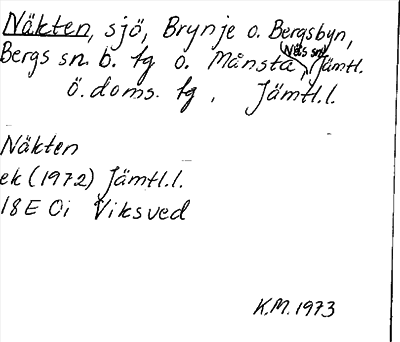 Näkten, sjö, Brynje o. Bergsbyn,
Bergs sn. b. tg o. Månsta, (Näs sn) Jämtl.
Ö. doms. tg, Jämtl.l.
Näkten
ek (1972) Jämtl.l.
18E Oi Viksved
K.M. 1973